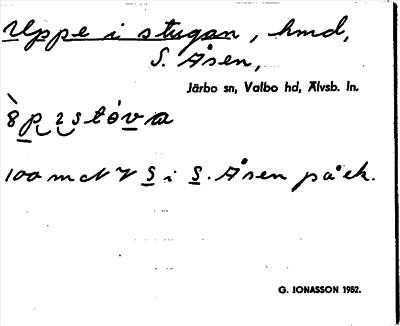 Uppe i stugan, hmd,
S. Åsen,
Järbo sn, Valbo hd, Älvsb. ln.
100 m N V S i S. Åsen på ek.
G. JONASSON 1952.